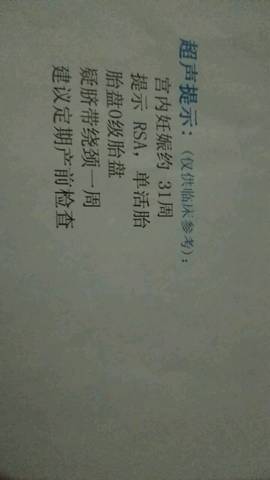 超声提示：（仅供临床参考）：
宫内妊娠约 31周
提示 RSA，单活胎
胎盘0级胎盘
疑脐带绕颈一周
建议定期产前检查